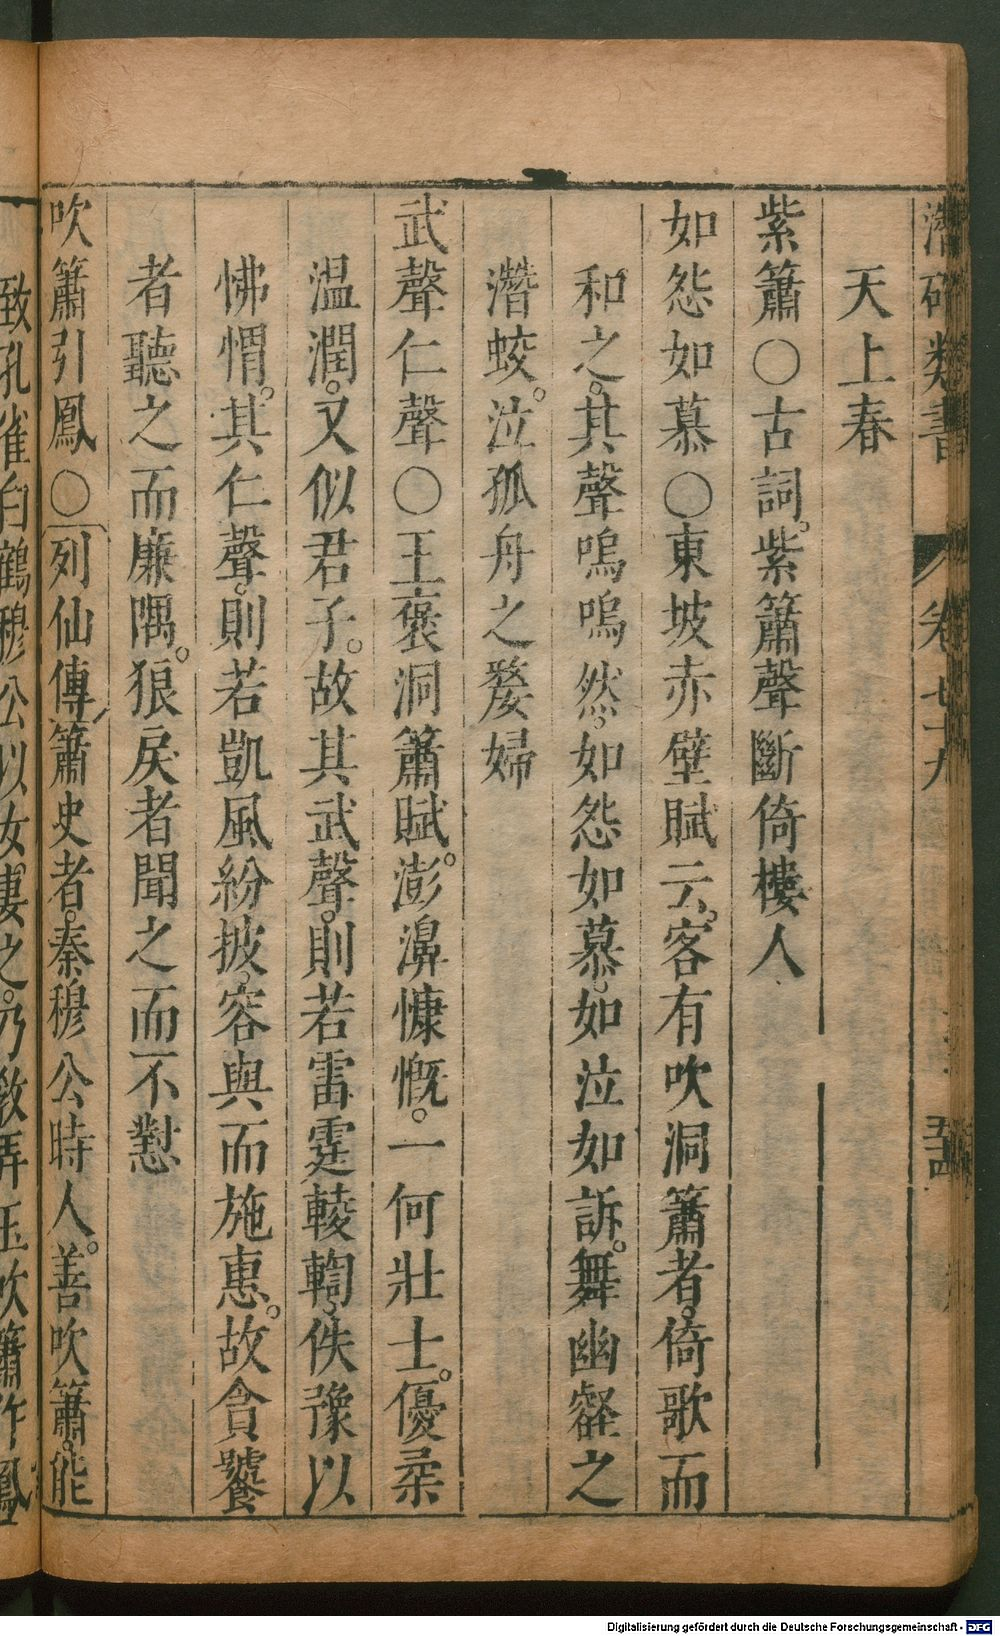 潛確類書 卷七十九
天上春
紫簫○古詞。紫簫聲斷倚樓人
如怨如慕○東坡赤壁賦云。客有吹洞簫者。倚歌而
和之。其聲嗚嗚然。如怨如慕。如泣如訴。舞幽壑之
潛蛟。泣孤舟之嫠婦
武聲仁聲○王褒洞簫賦。澎濞慷慨。一何壯士。優柔
温潤。又似君子。故其武聲。則若雷霆輘輷。佚豫以
怫㥜。其仁聲。則若凱風紛披。容與而施惠。故貪饕
者聽之而廉隅。狼戾者聞之而不懟
吹簫引鳳○列仙傳簫史者。秦穆公時人。善吹簫。能
致孔雀白鶴穆公以女妻之。乃教弄玉吹簫作鳳
Digitalisierung gefördert durch die Deutsche Forschungsgemeinschaft - DFG